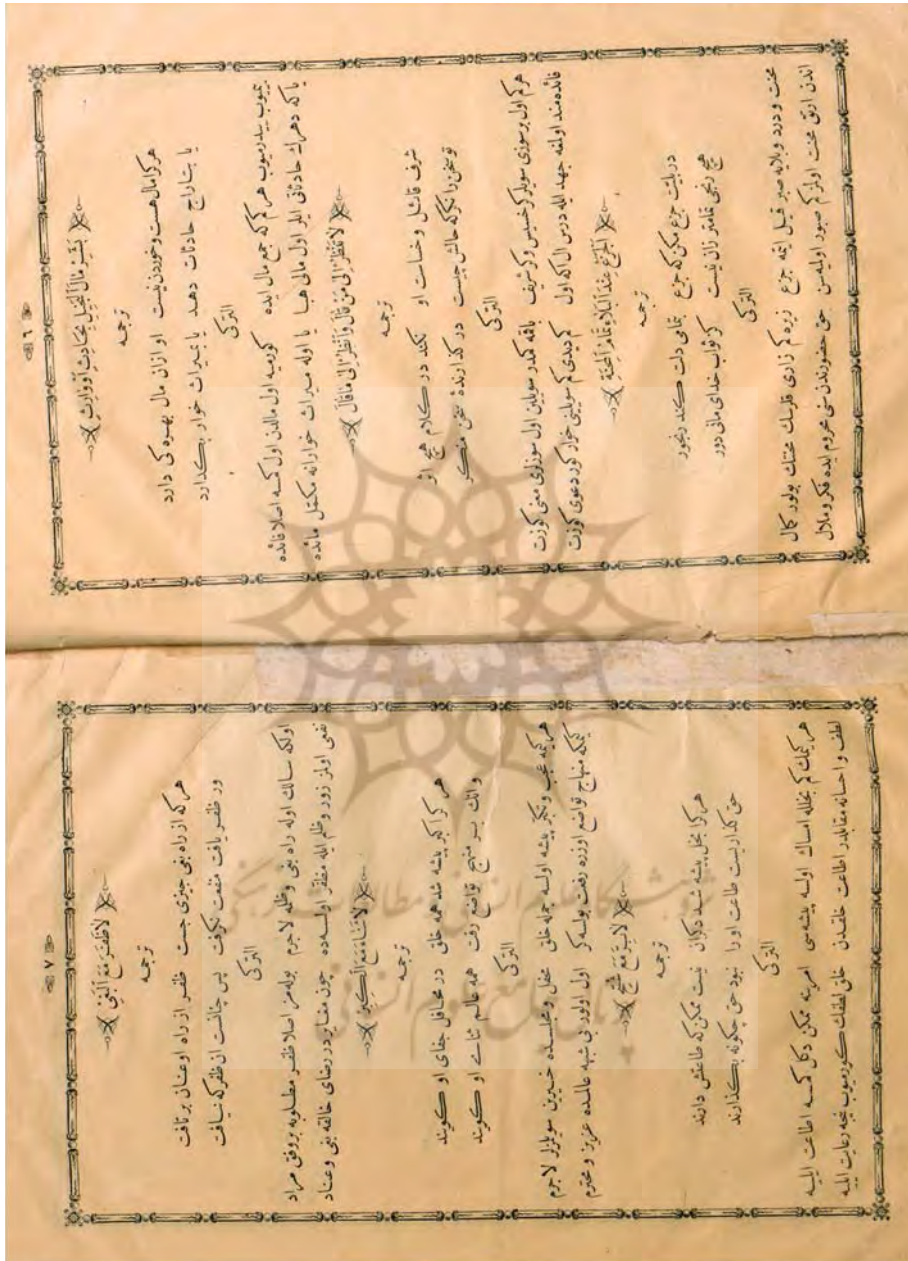 ٦
بَشِّرْ مَالَ الْبَخِيلِ بِحَادِثٍ اَوْ وَارِثٍ
ترجمه
هر کرا مال هست و خوردن نیست او ازان مال بهره کی دارد
یا بتاراج حادثات دهد یا بمیراث خوار بگذارد
الترکی
ییوب ییدرمیوب هر کم که جمع مال ایده کورمیه اول مالدن اول کسه اصلا فائده
یا که دهرك حادثاتی ایلر اول مالی هبا یا اوله میراث خوارانه مکمل مائده
لَا تَنْظُرْ اِلٰى مَنْ قَالَ وَانْظُرْ اِلٰى مَا قَالَ
ترجمه
شرف قائل و خساست او نکند در کلام هیچ اثر
تو سخن را نکر که حالش چیست در کذارندۀ سخن منکر
الترکی
هر کم اول بر سوزی سویلر کر خسیس و کر شریف باقمه کمدر سویلین اول سوزلری معنی کوزت
فائده مند اولمغه جهد ایله درس ال اکه اول کم دیدی کم سویلینی خوار کور دعوی کوزت
اَلْجَزَعُ عِنْدَ الْبَلَاءِ تَمَامُ الْمِحْنَةِ
ترجمه
در بلیت جزع مکن که جزع بتمامی دلت کند رنجور
هیچ رنجی تمامتر زان نیست کز ثواب خدای مانی دور
الترکی
محنت و درد و بلایه صبر قیل ایتمه جزع زیره کم زاری قلرسك محنتك بولور کمال
اندن ارتق محنت اولمز کم صبور اولمیه سن حق حضورندن سنی محروم ایده فکر و ملال
٧
لَا ظَفَرَ مَعَ الْبَغْىِ
ترجمه
هر که از راه بغی چیزی جست ظفر از راه او عنان بر تافت
ور ظفر یافت منفعت نکرفت پس چنانست آن ظفر که نیافت
الترکی
اولکه سالك اوله راه بغی و ظلمه لاجرم بوله مز اصلا ظفر مطلوبه بر وفق مراد
نفعی اولمز زور و ظلم ایله مظفر اولسه ده چون مغایردر رضای خالقه بغی و عناد
لَا ثَنَاءَ مَعَ الْكِبْرِ
ترجمه
هر کرا کبر پیشه شد همه خلق در محافل جفای او کویند
وانك بر منهج تواضع رفت همه عالم ثنای او کویند
الترکی
هر کیمه عجب و تکبر پیشه اولسه جمله خلق محفل و مجلسده خیرین سویلمزلر لاجرم
کیمکه منهاج تواضع اوزره رفعت بولسه کر اول اولور بی شبهه عالمده عزیز و محترم
لَا بِرَّ مَعَ شُحٍّ
ترجمه
هر کرا بخل پیشه شد دکران نیست ممکن که طاعتش دارند
حق کذاریست طاعت او را نبود حق چکونه بکذارند
الترکی
هر کیمك کم بخلله امساك اولسه پیشه سی امرینه ممکن دکل کمسه اطاعت ایلیه
لطف و احسانه مقابلدر اطاعت خلقدن خلق لطفك کورمیوب نیجه رعایت ایلیه
پژوهشگاه علوم انسانی و مطالعات فرهنگی
پرتال جامع علوم انسانی